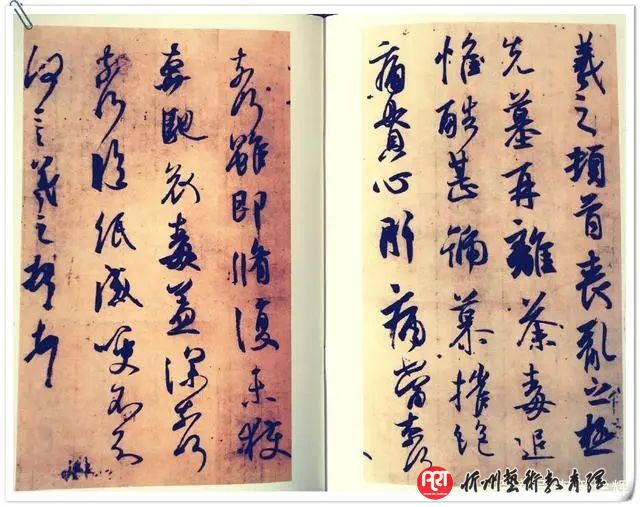 羲之頓首喪亂之極
先墓再離荼毒追
惟酷甚號慕摧絕
痛貫心肝痛當奈何
奈何雖即脩復未獲
奔馳哀毒益深奈何
奈何臨紙感哽不知
何言羲之頓首頓首
ART 忻州藝術教育網